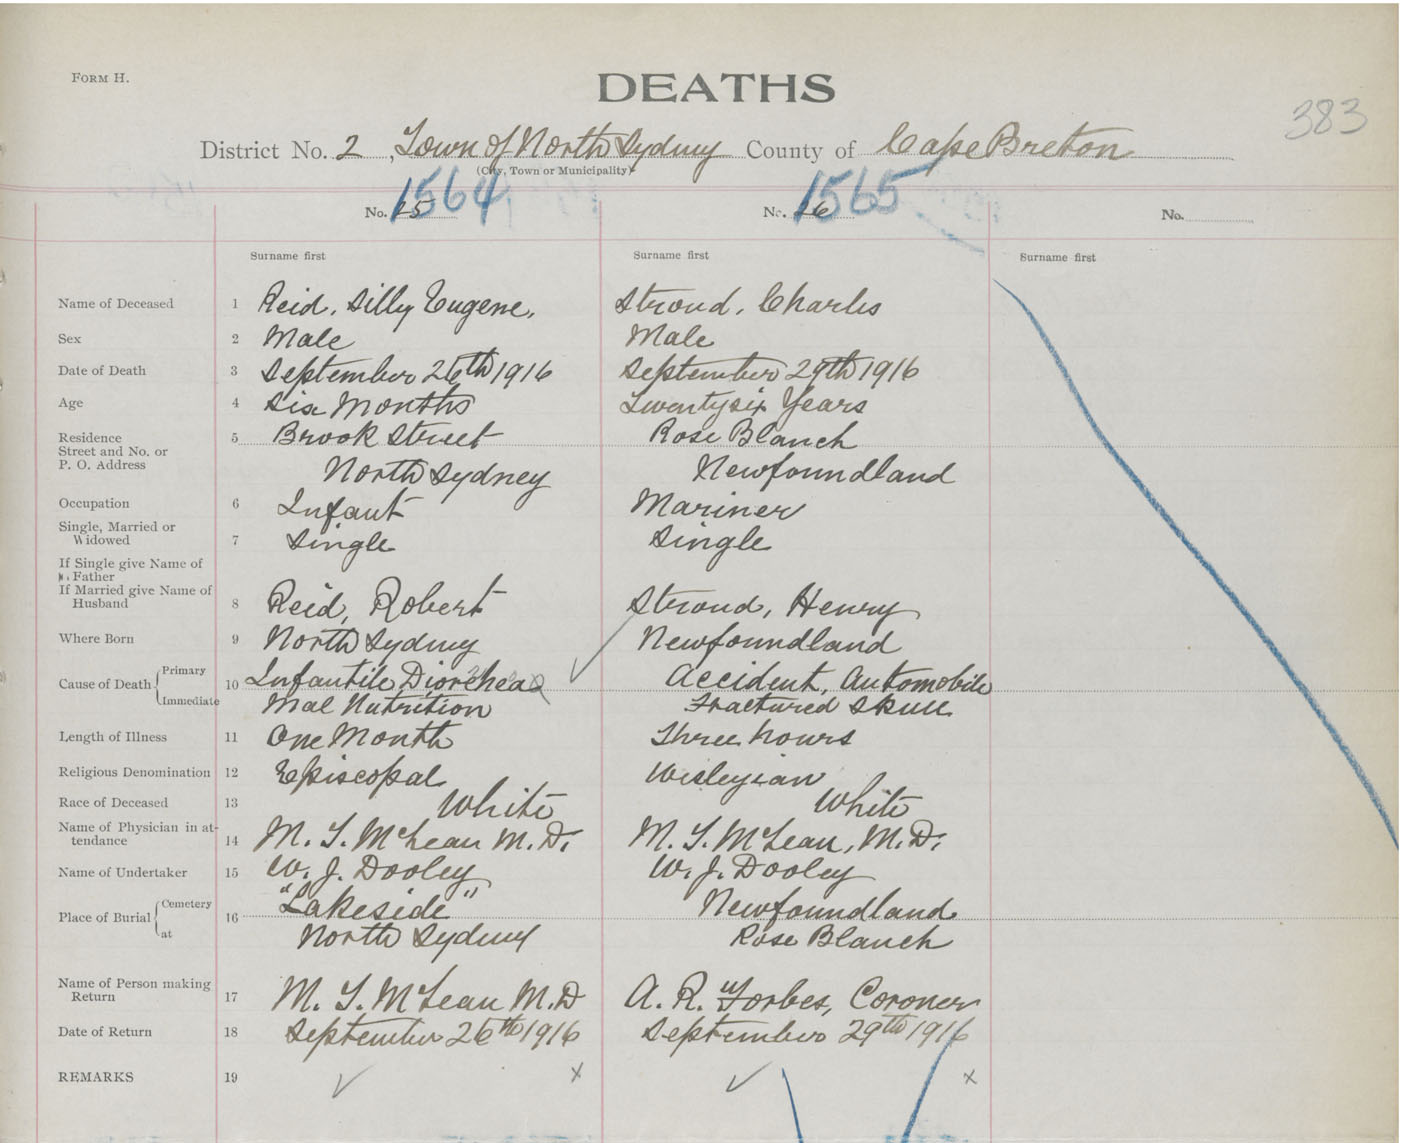 FORM H.
DEATHS
383
District No. 2, Town of North Sydney County of Cape Breton
(City, Town or Municipality)
1564 1565
No. 25 No. 26 No.
Surname first Surname first Surname first
Name of Deceased 1 Reid, Silly Eugene, Stroud, Charles
Sex 2 Male Male
Date of Death 3 September 26th 1916 September 29th 1916
Age 4 Six Months Twentysix Years
Residence 5 Brook Street Rose Blanch
Street and No. or
P. O. Address North Sydney Newfoundland
Occupation 6 Infant Mariner
Single, Married or
Widowed 7 Single Single
If Single give Name of
Father
If Married give Name of
Husband 8 Reid, Robert Stroud, Henry
Where Born 9 North Sydney Newfoundland
Primary
Cause of Death 10 Infantile Diorrhea Accident, Automobile
Immediate Mal Nutrition Fractured Skull
Length of Illness 11 One Month Three hours
Religious Denomination 12 Episcopal Wesleyian
Race of Deceased 13 White White
Name of Physician in at-
tendance 14 M. T. McLean M.D. M. T. McLean, M.D.
Name of Undertaker 15 W. J. Dooley W. J. Dooley
Cemetery "Lakeside"
Place of Burial 16 Newfoundland
at North Sydney Rose Blanch
Name of Person making
Return 17 M. T. McLean M.D A. R. Forbes, Coroner
Date of Return 18 September 26th 1916 September 29th 1916
REMARKS 19 ✓ x ✓ x